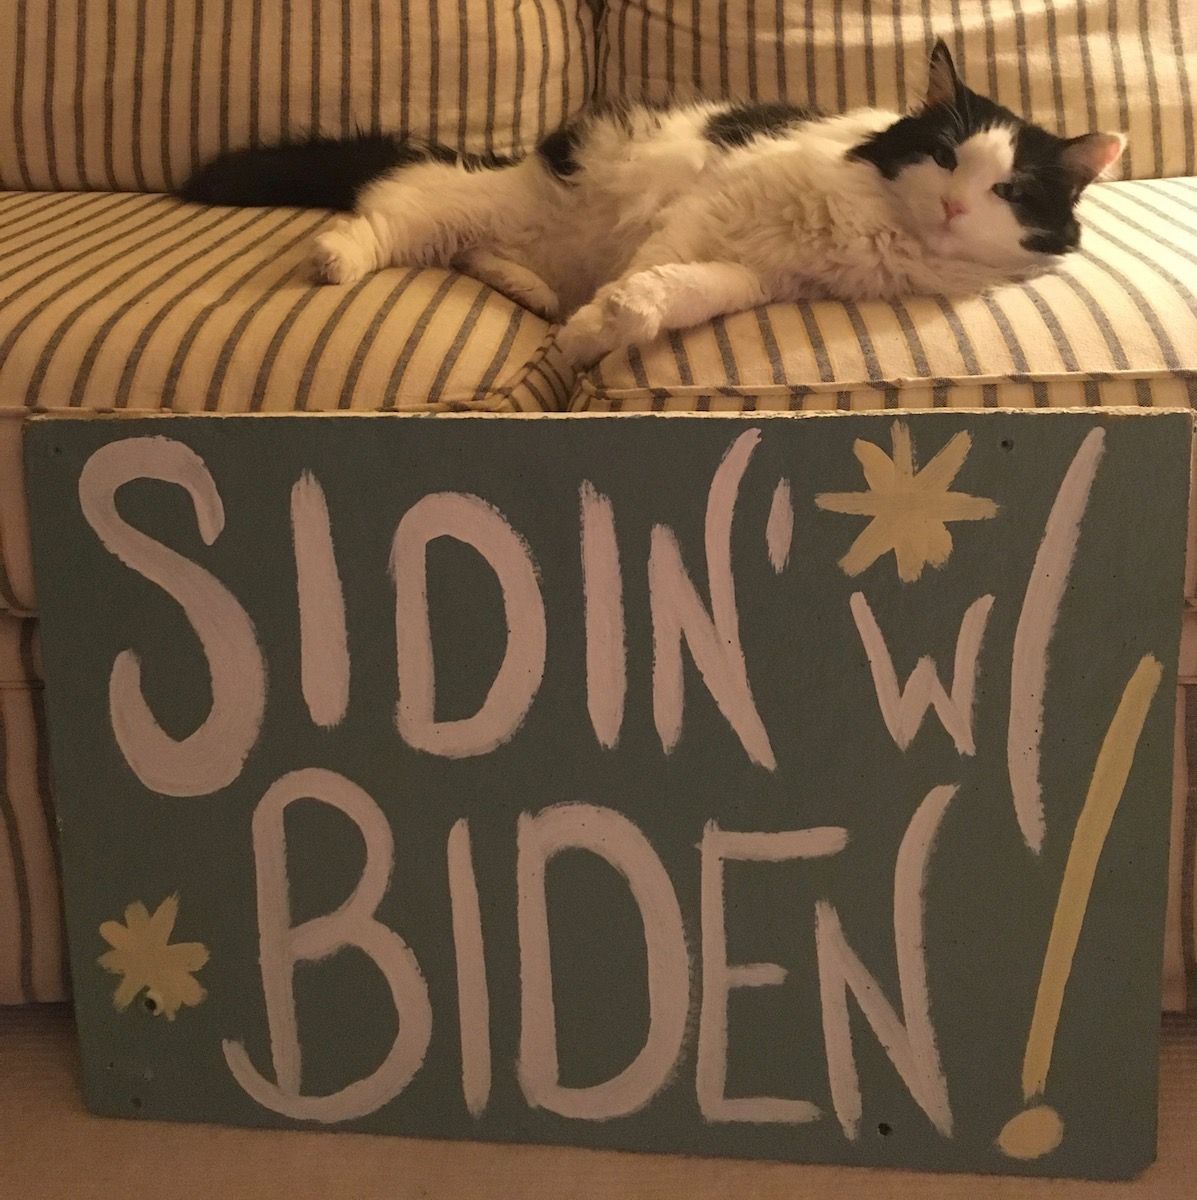 SIDIN' W/
BIDEN!